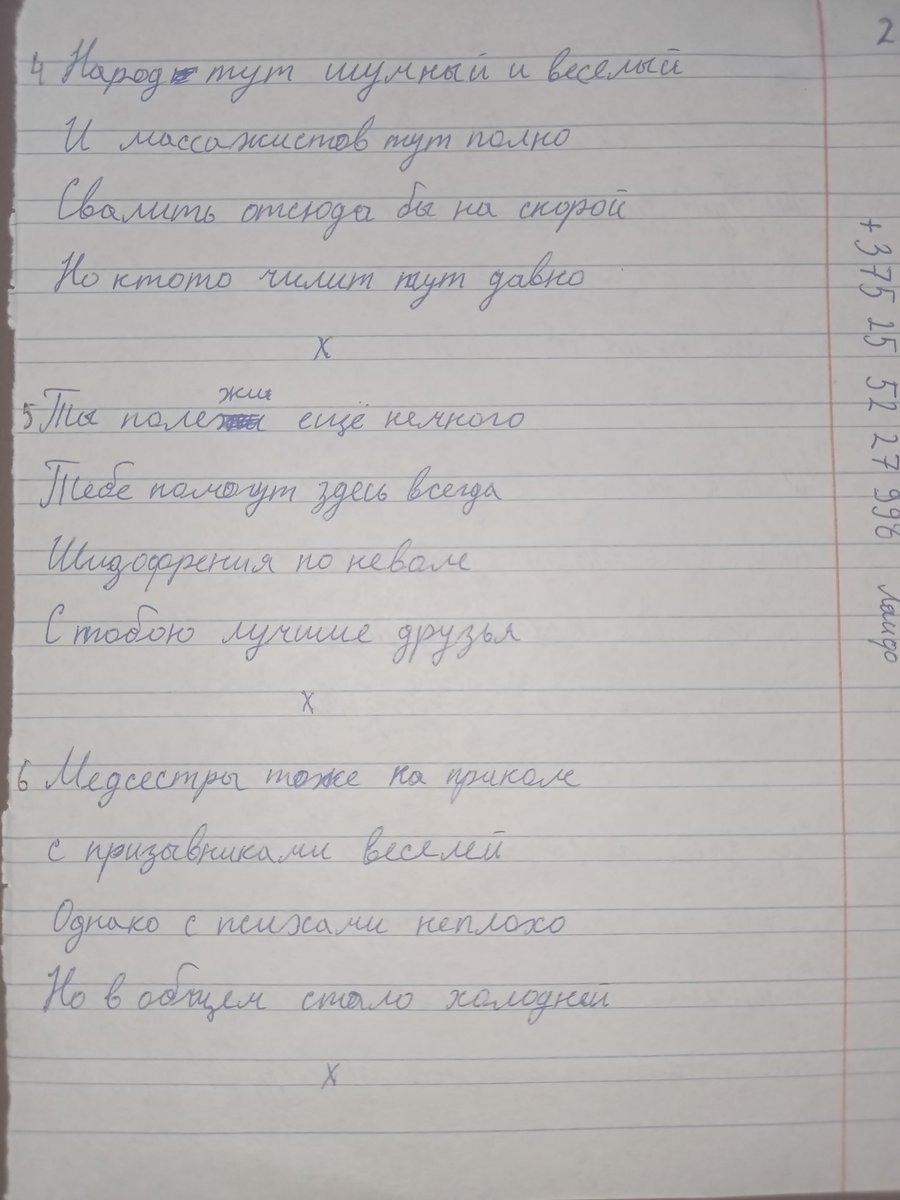 2
4 Народ тут шумный и веселый
И массажистов тут полно
Свалить отсюда бы на скорой
Но ктото чилит тут давно
х
5 Ты полежи ещё немного
Тебе помогут здесь всегда
Шизофрения по неволе
С тобою лучшие друзья
х
6 Медсестры тоже на приколе
с призывниками веселей
Однако с психами неплохо
Но в общем стало холодней
х
+375 25 52 27 998 Ландо